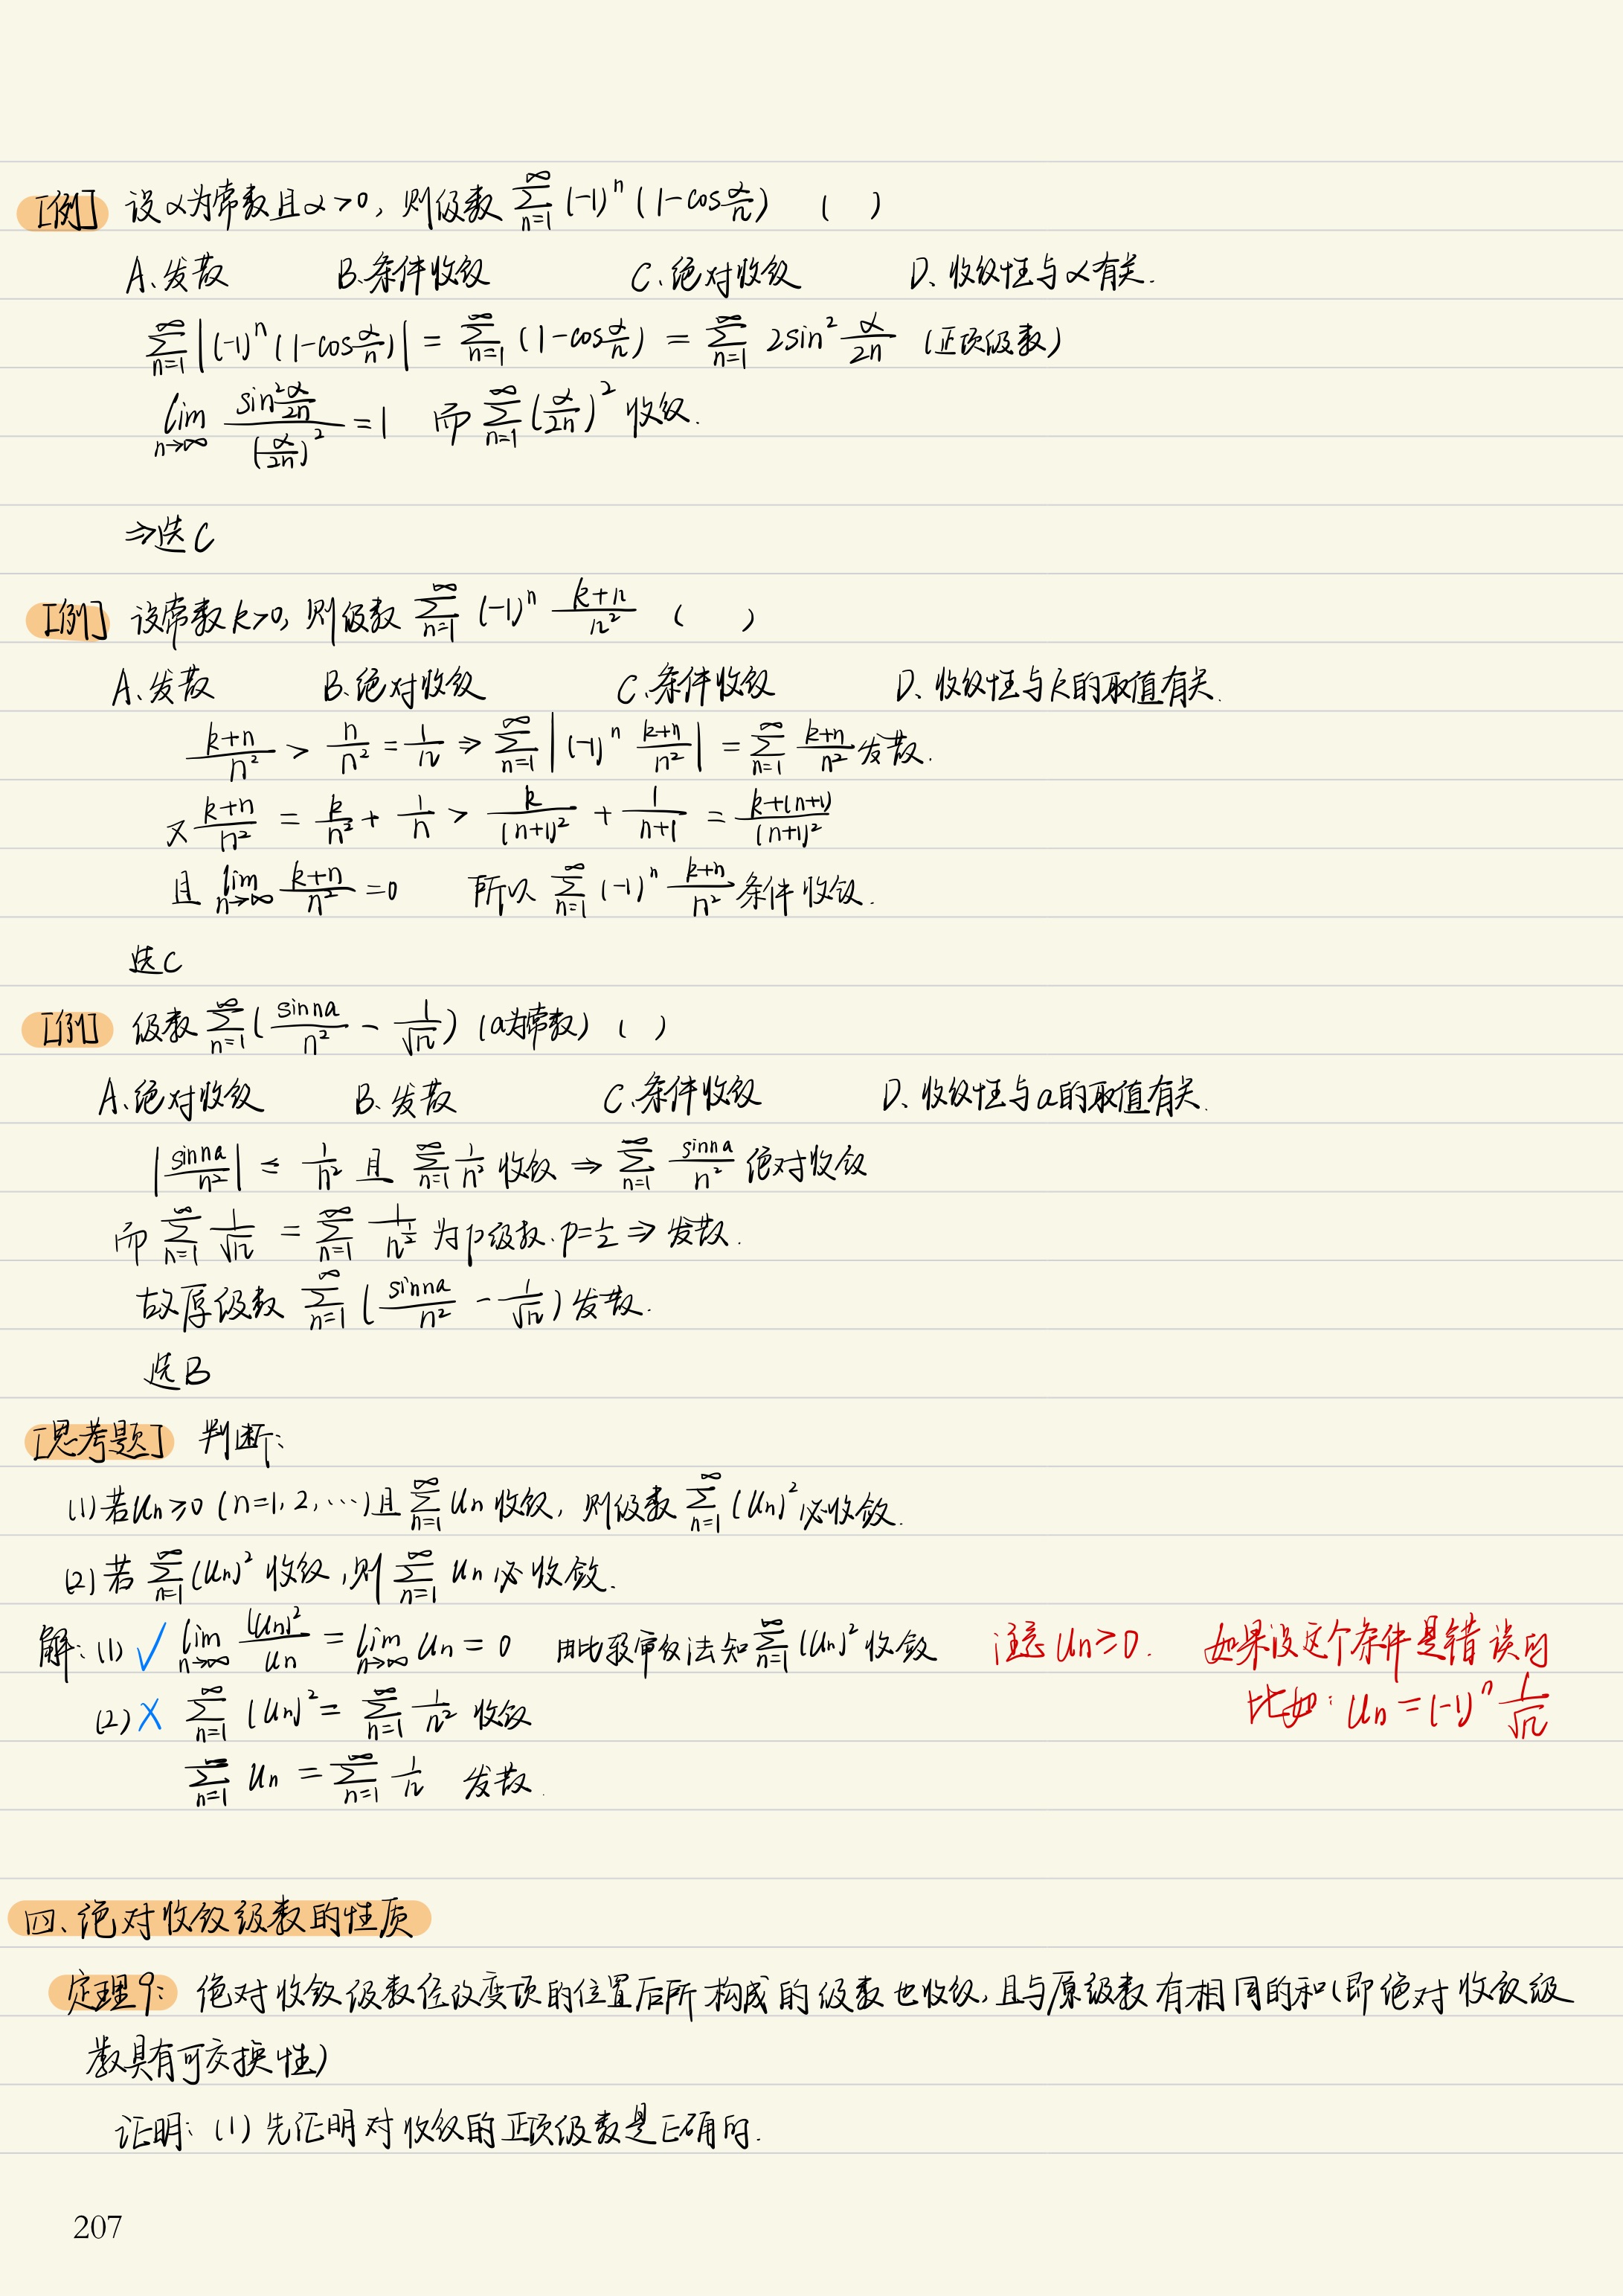 [例] 设α为常数且α>0, 则级数 ∑_{n=1}^{∞} (-1)^n (1-cos α/n) ( )
A、发散 B.条件收敛 C、绝对收敛 D、收敛性与α有关.
∑_{n=1}^{∞} |(-1)^n (1-cos α/n)| = ∑_{n=1}^{∞} (1-cos α/n) = ∑_{n=1}^{∞} 2sin² α/2n (正项级数)
lim_{n→∞} (sin² α/2n)/(α/2n)² = 1 而 ∑_{n=1}^{∞} (α/2n)² 收敛.
⇒选C
[例] 设常数k>0, 则级数 ∑_{n=1}^{∞} (-1)^n (k+n)/n² ( )
A、发散 B.绝对收敛 C、条件收敛 D、收敛性与k的取值有关.
(k+n)/n² > n/n² = 1/n ⇒ ∑_{n=1}^{∞} |(-1)^n (k+n)/n²| = ∑_{n=1}^{∞} (k+n)/n² 发散.
又 (k+n)/n² = k/n² + 1/n > k/(n+1)² + 1/(n+1) = (k+(n+1))/(n+1)²
且 lim_{n→∞} (k+n)/n² = 0 所以 ∑_{n=1}^{∞} (-1)^n (k+n)/n² 条件收敛.
选C
[例] 级数 ∑_{n=1}^{∞} (sin na/n² - 1/√n) (a为常数) ( )
A.绝对收敛 B、发散 C.条件收敛 D、收敛性与a的取值有关.
|sin na/n²| ≤ 1/n² 且 ∑_{n=1}^{∞} 1/n² 收敛 ⇒ ∑_{n=1}^{∞} sin na/n² 绝对收敛
而 ∑_{n=1}^{∞} 1/√n = ∑_{n=1}^{∞} 1/n^{1/2} 为p级数. p=1/2 ⇒ 发散.
故原级数 ∑_{n=1}^{∞} (sin na/n² - 1/√n) 发散.
选B
[思考题] 判断:
(1) 若Un≥0 (n=1, 2, ⋯) 且 ∑_{n=1}^{∞} Un 收敛, 则级数 ∑_{n=1}^{∞} (Un)² 必收敛.
(2) 若 ∑_{n=1}^{∞} (Un)² 收敛, 则 ∑_{n=1}^{∞} Un 必收敛.
解: (1) ✓ lim_{n→∞} (Un)²/Un = lim_{n→∞} Un = 0 用比较审敛法知 ∑_{n=1}^{∞} (Un)² 收敛 注意 Un≥0. 如果没这个条件是错误的
(2) × ∑_{n=1}^{∞} (Un)² = ∑_{n=1}^{∞} 1/n² 收敛 比如: Un = (-1)^n 1/√n
∑_{n=1}^{∞} Un = ∑_{n=1}^{∞} 1/n 发散.
四、绝对收敛级数的性质
定理9: 绝对收敛级数任改变项的位置后所构成的级数也收敛, 且与原级数有相同的和(即绝对收敛级
数具有可交换性)
证明: (1) 先证明对收敛的正项级数是正确的.
207